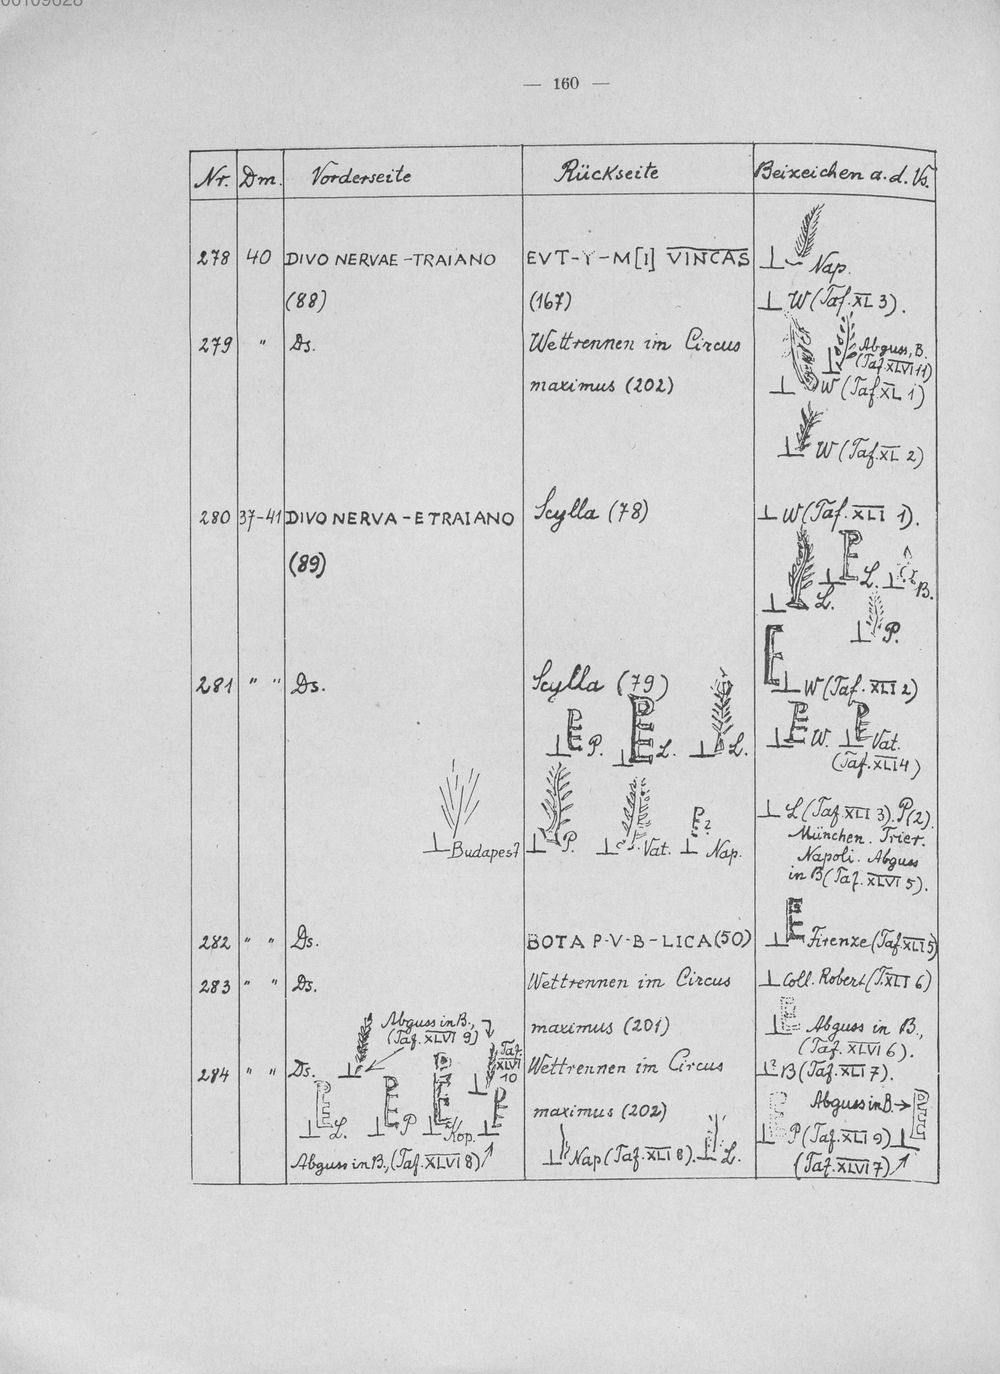 — 160 —
Nr. Dm. Vorderseite Rückseite Beizeichen a. d. Vs.
278 40 DIVO NERVAE – TRAIANO EVT-Y-M[I] VINCAS Nap.
(88) (167) W (Taf. XL 3).
279 " Ds. Wettrennen im Circus Abguss, B.
(Taf. XLVI 11)
maximus (202) W (Taf. XL 1)
W (Taf. XL 2)
280 37-41 DIVO NERVA – E TRAIANO Scylla (78) W (Taf. XLI 1).
(89) L. B.
L.
P.
281 " " Ds. Scylla (79) W (Taf. XLI 2)
P. L. L. W. Vat.
(Taf. XLI 4)
L (Taf. XLI 3). P(2).
München. Trier.
Budapest P. Vat. ? Nap. Napoli. Abguss
in B (Taf. XLVI 5).
282 " " Ds. BOTA P-V-B-LICA (50) Firenze (Taf. XLI 5)
283 " " Ds. Wettrennen im Circus Coll. Robert (T. XLI 6)
maximus (201) Abguss in B.,
(Taf. XLVI 6).
Abguss in B.,
(Taf. XLVI 9)
Taf.
XLVI
10
284 " " Ds. Wettrennen im Circus ? B (Taf. XLI 7).
maximus (202) Abguss in B.
L. P Kop. Nap (Taf. XLI 8). L. P (Taf. XLI 9)
Abguss in B., (Taf. XLVI 8) (Taf. XLVI 7)